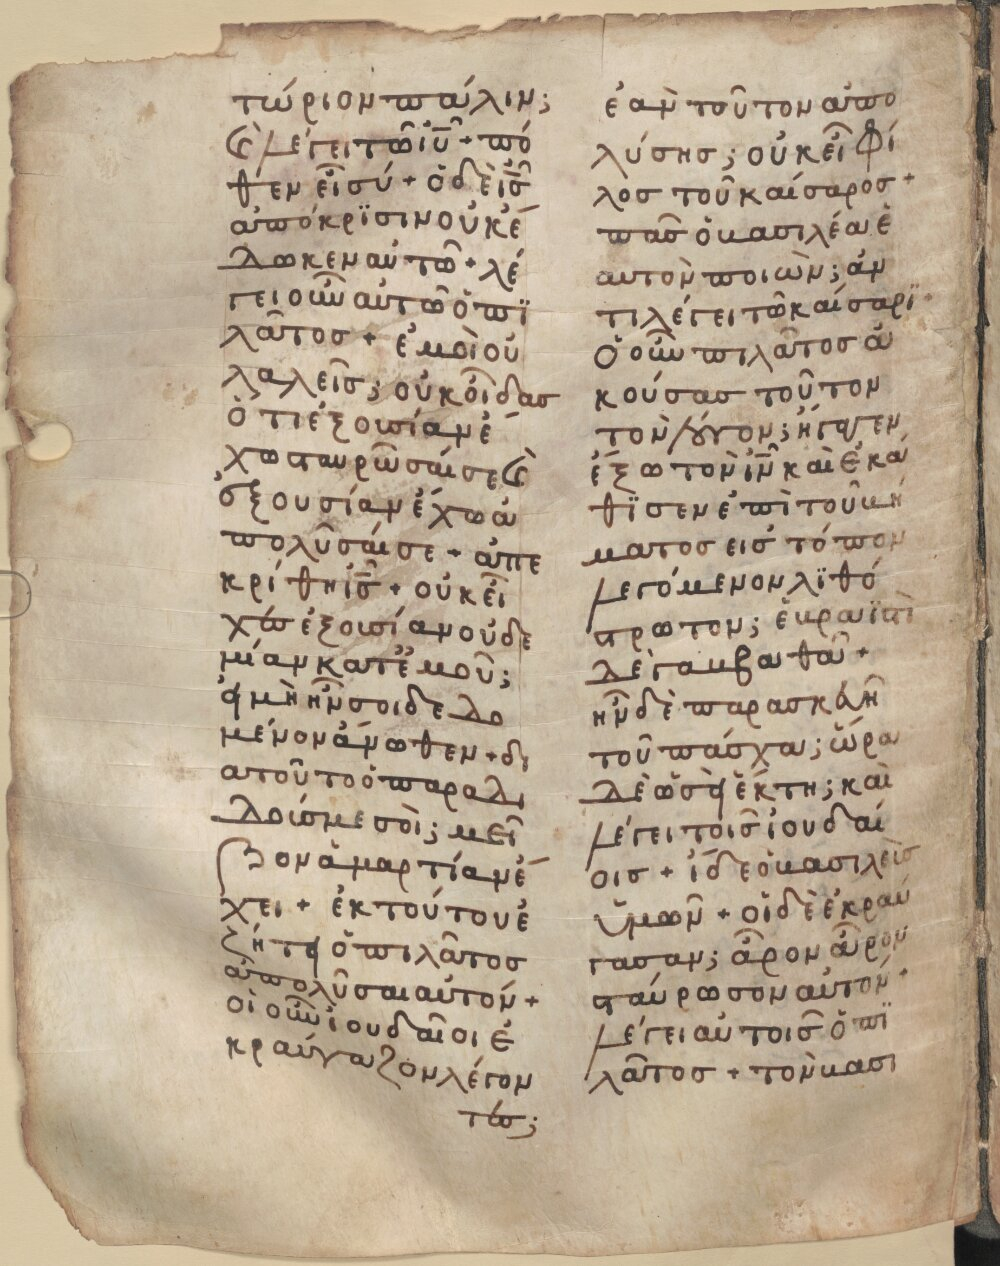 τώριον πάλιν;
Καὶ λέγει τῶ ἰῡ + πό
θεν εἶ σύ + ὁ δὲ ἰς̄
ἀπόκρϊσιν οὐκ έ
δωκεν αὐτῶ + λέ
γει οὖν αὐτῶ ὁ πϊ
λᾶτος + ἐμοὶ οὐ
λαλεῖς; οὐκ οἶδας
ὅτι ἐξουσίαν έ
χω σταυρῶσαί σε καὶ
ἐξουσίαν ἔχω ἀ
πολῦσαί σε + ἀπε
κρίθη ἰς̄ + οὐκ εἶ
χες ἐξουσίαν οὐδε
μίαν κατ ἐμοῦ;
εἰ μὴ ἦν σοι δεδο
μένον ἄνωθεν + δι
α τοῦτο ὁ παραδι
δούς με σὸι; μεῖ
ζον ἁμαρτίαν έ
χει + ἐκ τούτου ἐ
ζήτει ὁ πιλᾶτος
ἀπολῦσαι αὐτόν +
οἱ οὖν ἰουδαῖοι ἐ
κραύγαζον λέγον
τες;
ἐὰν τοῦτον ἀπο
λύσης; οὐκ εἶ φί
λος τοῦ καίσαρος +
πᾶς ὁ βασιλέα ἑ
αυτὸν ποιὼν; ἀν
τιλέγει τῶ καίσαρϊ +
Ὁ οὖν πιλᾶτος ἀ
κούσας τοῦτον
τὸν λόγον; ἤγαγεν
ἔξω τὸν ἰν̄ καὶ ἐκά
θϊσεν ἐπὶ τοῦ βή
ματος εἰς τόπον
λεγόμενον λϊθό
στρωτον; ἑβραϊστὶ
δὲ γαββαθᾶ +
ἦν δὲ παρασκευὴ
τοῦ πάσχα; ὥρα
δὲ ὡσεὶ ἕκτη; καὶ
λέγει τοῖς ἰουδαί
οις + ἰδε ὁ βασιλεὶς
ὑμῶν + οἱ δὲ ἐκραύ
γασαν; ἆρον ἆρον
σταύρωσον αὐτόν +
λέγει αὐτοῖς ὁ πϊ
λᾶτος + τὸν βασι